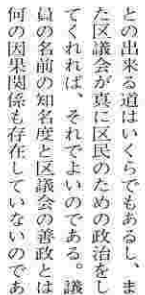 との出来る道はいくらでもあるし、ま
た区議会が真に区民のための政治をし
てくれれば、それでよいのである。議
員の名前の知名度と区議会の善政とは
何の因果関係も存在していないのであ